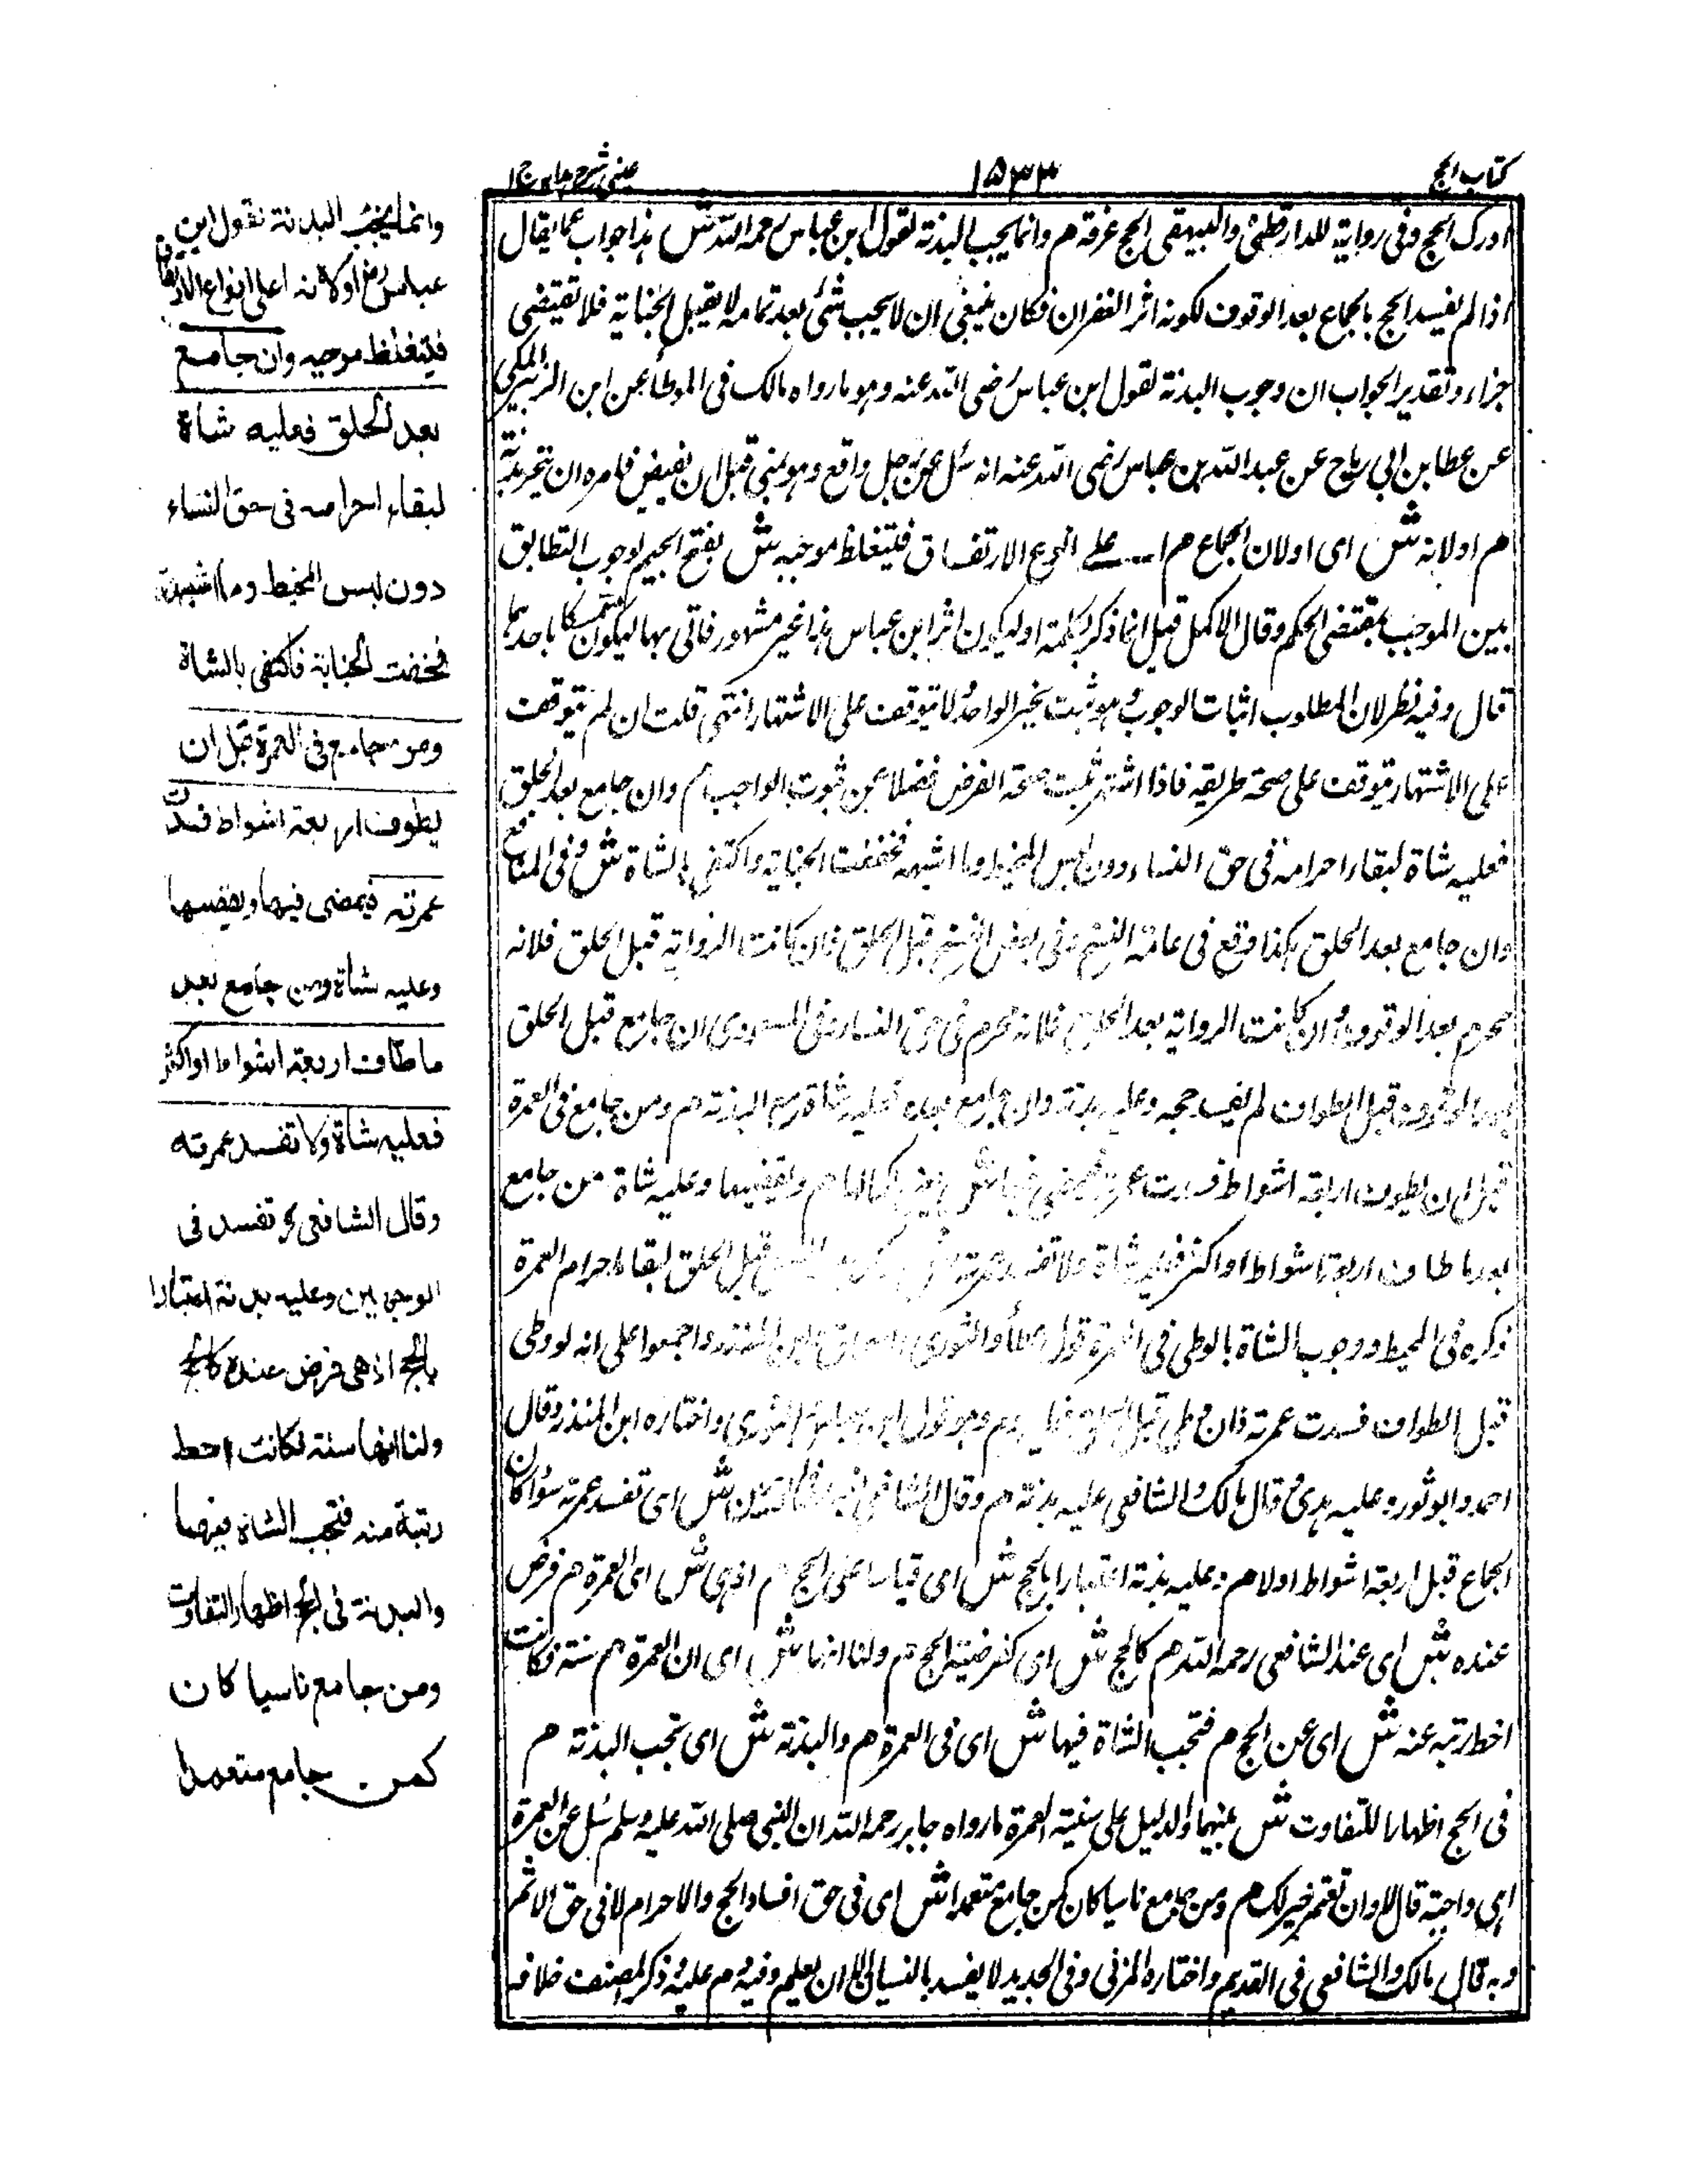 كتاب الحج
١٥٣٣
عينى شرح هدايه ج ١
ادرك الحج وفى رواية للدارقطنى والبيهقى الحج عرفة هم وانما يجب البدنة لقول ابن عباس رحمه الله ش هذا جواب عما يقال
اذا لم يفسد الحج بالجماع بعد الوقوف لكونه اثر الغفران فكان ينبغى ان لا يجب شئ بعد تمامه لا يقبل الجناية فلا تقتضى
جزاء وتقدير الجواب ان وجوب البدنة لقول ابن عباس رضى الله عنه وهو ما رواه مالك فى الموطأ عن ابن الزبير المكى
عن عطا بن ابى رباح عن عبد الله بن عباس رضى الله عنه انه سئل عن رجل واقع وهو بمنى قبل ان يفيض فامره ان ينحر بدنة
هم اولانه ش اى اولان الجماع هم على انوع الارتفاق فيتغلظ موجبه ش بفتح الجيم لوجوب التطابق
بين الموجب بمقتضى الحكم وقال الاكمل قيل انما ذكر بكلمة او ليكون اثر ابن عباس هذا غير مشهور فاتى بها ليكون متمسكا باحدهما
قال وفيه نظر لان المطلوب اثبات الوجوب وهو يثبت بخبر الواحد ولا يتوقف على الاشتهار انتهى قلت ان لم يتوقف
على الاشتهار يتوقف على صحة طريقه فاذا اشتهر ثبت صحة الفرض فضلا عن ثبوت الواجب هم وان جامع بعد الحلق
فعليه شاة لبقاء احرامه فى حق النساء دون لبس المخيط وما اشبهه فخففت الجناية واكتفى بالشاة ش وفى المنافع
وان جامع بعد الحلق هكذا وقع فى عامة النسخ وفى بعض النسخ قبل الحلق فان كانت الرواية قبل الحلق فلانه
محرم بعد الوقوف وان كانت الرواية بعد الحلق فلانه محرم فى حق النساء وفى المسعودى ان جامع قبل الحلق
الوقوف قبل الطواف لم يفسد حجه وعليه بدنة وان جامع بعده فعليه شاة مع البدنة هم ومن جامع فى العمرة
قبل ان يطوف اربعة اشواط فسدت عمرته فيمضى فيها ش هم ويقضيها وعليه شاة من جامع
بعد ما طاف اربعة اشواط او اكثر فعليه شاة ولا تفسد عمرته قبل الحلق لبقاء احرام العمرة
ذكره فى المحيط ووجوب الشاة بالوطى فى العمرة قول عطأ والثورى واجمعوا على انه لو وطى
قبل الطواف فسدت عمرته فان وطى قبل وهو قول ابن عباس والثورى واختاره ابن المنذر وقال
احمد وابو ثور وعليه هدى وقال مالك والشافعى عليه بدنة هم وقال الشافعى ش اى تفسد عمرته سواء كان
الجماع قبل اربعة اشواط اولا هم وعليه بدنة اعتبارا بالحج ش اى قياسا على الحج هم اذ هى ش اى العمرة هم فرض
عنده ش اى عند الشافعى رحمه الله هم كالحج ش اى كفرضية الحج هم ولنا انها ش اى ان العمرة هم سنة فكانت
احط رتبه عنه ش اى عن الحج هم فتجب الشاة فيها ش اى فى العمرة هم والبدنة ش اى تجب البدنة هم
فى الحج اظهارا للتفاوت ش بينهما والدليل على سنية العمرة ما رواه جابر رحمه الله ان النبى صلى الله عليه وسلم سئل عن العمرة
اهى واجبة قال لا وان تعتمر خير لك هم ومن جامع ناسيا كان كمن جامع متعمدا ش اى فى حق افساد الحج والاحرام لا فى حق الاثم
وبه قال مالك والشافعى فى القديم واختاره المزنى وفى الجديد لا يفسد بالنسيان وذكر المصنف خلافه
وانما يجب البدنة لقول ابن
عباس رض اولانه اعلى انواع الارتفاق
فيتغلظ موجبه وان جامع
بعد الحلق فعليه شاة
لبقاء احرامه فى حق النساء
دون لبس المخيط وما اشبهه
فخفت الجناية فاكتفى بالشاة
ومن جامع فى العمرة قبل ان
يطوف اربعة اشواط فسدت
عمرته فيمضى فيها ويقضيها
وعليه شاة ومن جامع بعد
ما طاف اربعة اشواط او اكثر
فعليه شاة ولا تفسد عمرته
وقال الشافعى رح تفسد فى
الوجهين وعليه بدنة اعتبارا
بالحج اذ هى فرض عنده كالحج
ولنا انها سنة فكانت احط
رتبة منه فتجب الشاة فيها
والبدنة فى الحج اظهارا للتفاوت
ومن جامع ناسيا كان
كمن جامع متعمدا